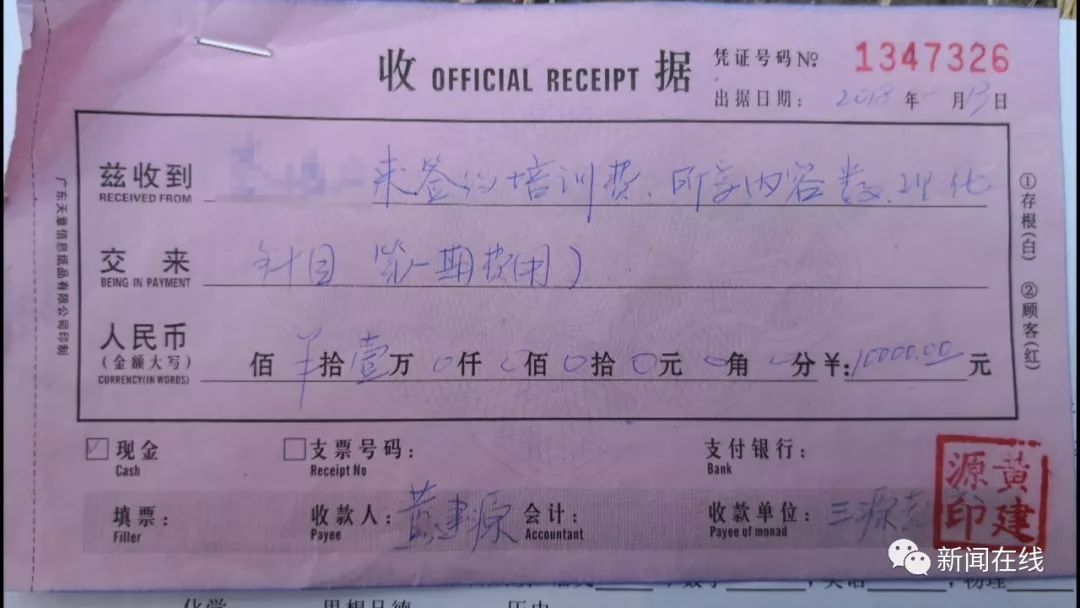 收 OFFICIAL RECEIPT 据
凭证号码 №: 1347326
出据日期: 2018 年 一 月 13 日
兹收到 来签约培训费、所学内容数、理化
RECEIVED FROM
交来 科目 第一期费用)
BEING IN PAYMENT
人民币
(金额大写)
CURRENCY(IN WORDS)
佰 拾 壹 万 0 仟 0 佰 0 拾 0 元 0 角 分 ¥: 10000.00 元
现金
Cash
支票号码:
Receipt No
支付银行:
Bank
填票:
Filler
收款人: 黄建源
Payee
会计:
Accountant
收款单位: 三源
Payee of monad
黄建源印
①存根(白) ②顾客(红)
广东天章信息纸品有限公司印制
新闻在线
化学 思想品德 历史